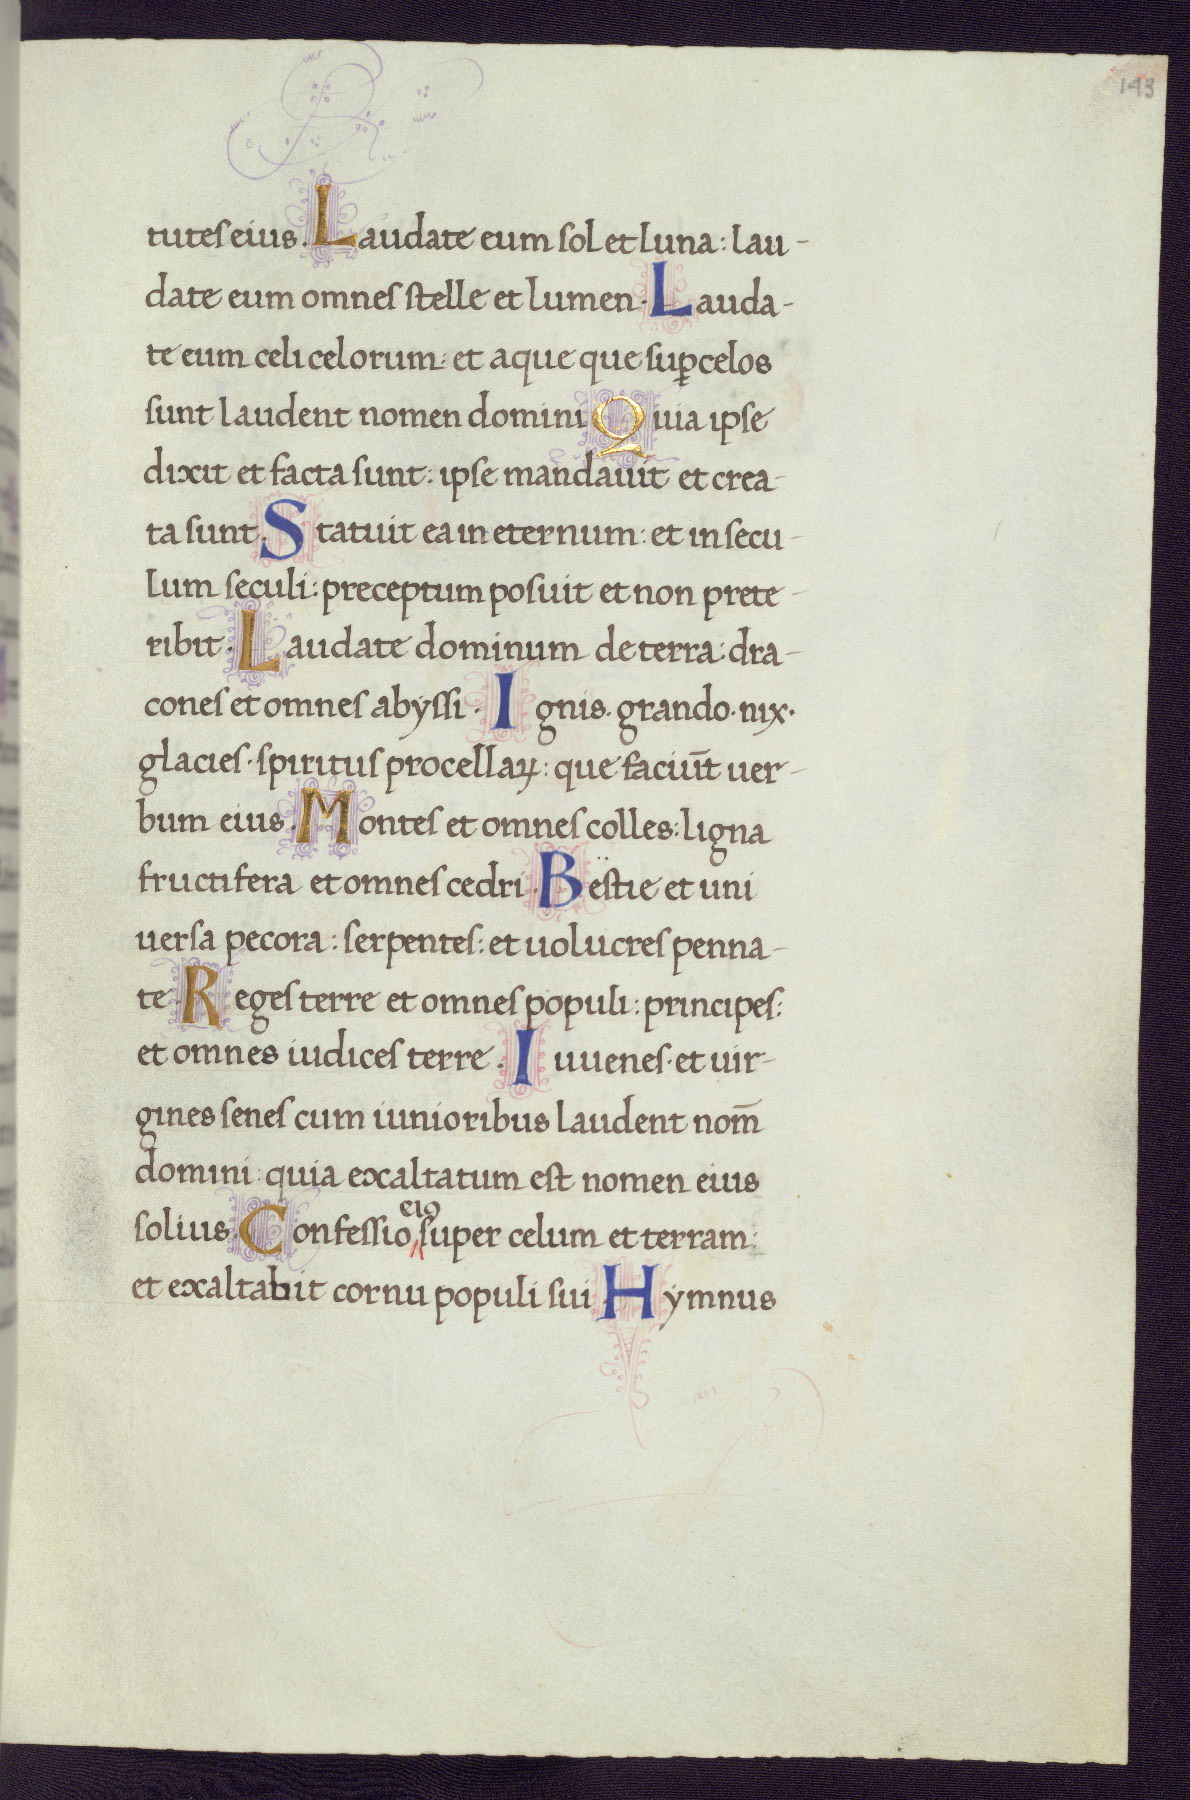 143
tutes eius. Laudate eum sol et luna: lau-
date eum omnes stelle et lumen. Lauda-
te eum celi celorum: et aque que suꝑ celos
sunt laudent nomen domini Quia ipse
dixit et facta sunt: ipse mandauit et crea-
ta sunt. Statuit ea in eternum: et in secu-
lum seculi: preceptum posuit et non prete-
ribit. Laudate dominum de terra: dra-
cones et omnes abyssi. Ignis. grando. nix.
glacies. spiritus procellaꝝ: que faciūt uer-
bum eius. Montes et omnes colles: ligna
fructifera et omnes cedri. Bestie et uni
uersa pecora: serpentes: et uolucres penna-
te. Reges terre et omnes populi: principes:
et omnes iudices terre. Iuuenes. et uir-
gines senes cum iunioribus laudent nom̄
domini: quia exaltatum est nomen eius
solius. Confessio eiꝰ super celum et terram:
et exaltabit cornu populi sui. Hymnus